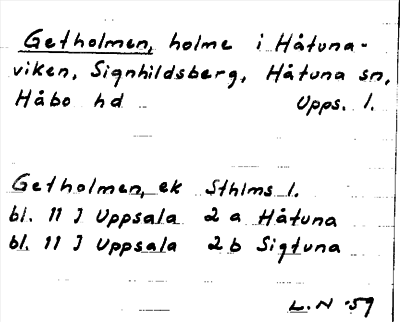 Getholmen, holme i Håtuna-
viken, Signhildsberg, Håtuna sn,
Håbo hd Upps. l.
Getholmen, ek Sthlms l.
bl. 11 J Uppsala 2 a Håtuna
bl. 11 J Uppsala 2 b Sigtuna
L.N '59